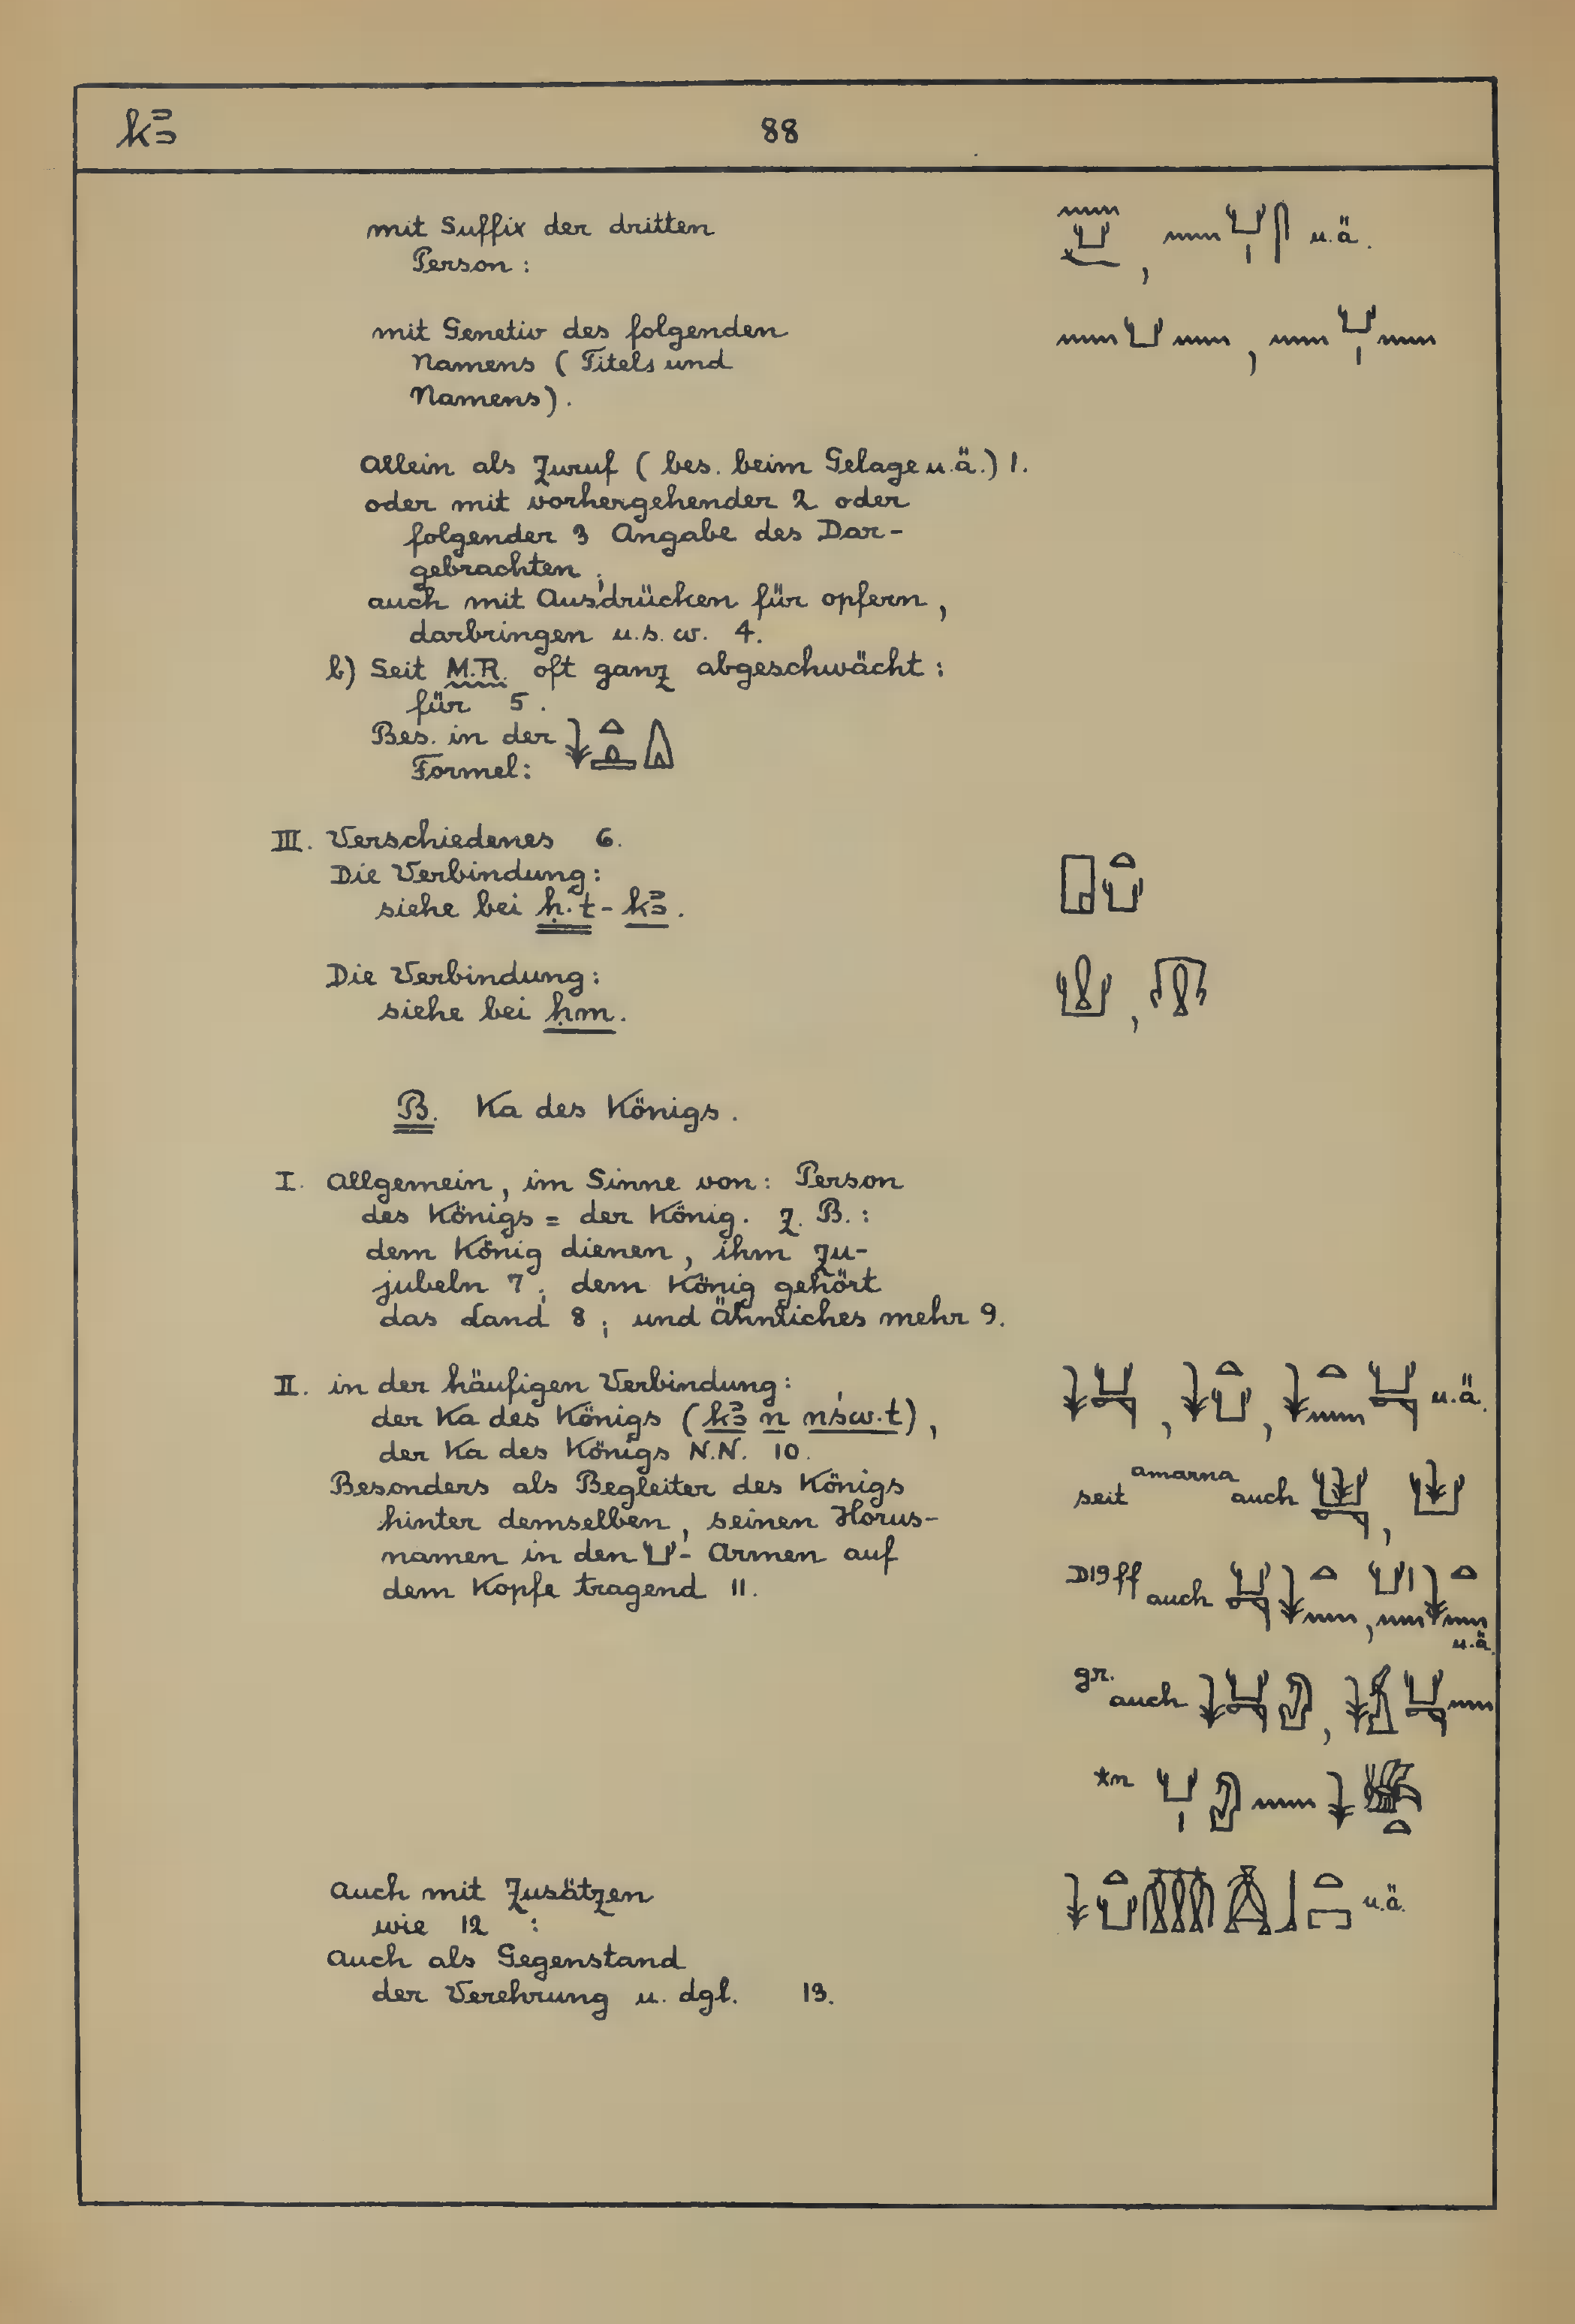 kꜣ 88
mit Suffix der dritten u.ä.
Person :
mit Genetiv des folgenden
Namens ( Titels und
Namens).
Allein als Zuruf ( bes. beim Gelage u.ä.) 1.
oder mit vorhergehender 2 oder
folgender 3 Angabe des Dar-
gebrachten ;
auch mit Ausdrücken für opfern,
darbringen u.s.w. 4.
b) Seit M.R. oft ganz abgeschwächt :
für 5.
Bes. in der
Formel:
III. Verschiedenes 6.
Die Verbindung:
siehe bei ḥ.t-kꜣ.
Die Verbindung:
siehe bei ḥm.
B. Ka des Königs.
I. Allgemein, im Sinne von: Person
des Königs = der König. z. B. :
dem König dienen, ihm zu-
jubeln 7 ; dem König gehört
das Land 8 ; und Ähnliches mehr 9.
II. in der häufigen Verbindung: u.ä.
der Ka des Königs (kꜣ n nśw.t),
der Ka des Königs N.N. 10.
Besonders als Begleiter des Königs
seit Amarna auch
hinter demselben, seinen Horus-
namen in den 𓂓- Armen auf
dem Kopfe tragend 11.
D19 ff auch
u.ä.
gr. auch
*n
Auch mit Zusätzen u.ä.
wie 12 :
Auch als Gegenstand
der Verehrung u. dgl. 13.